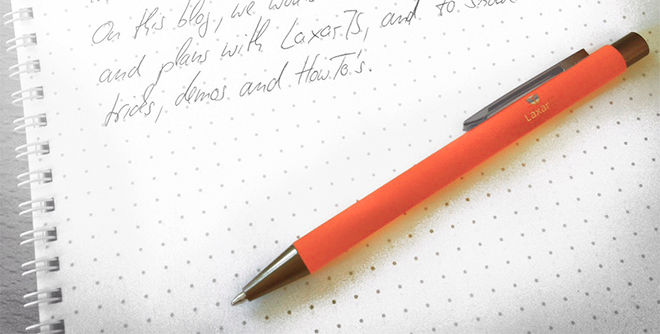 On this blog, we wou
and plans with LaxarJS, and to sho
tricks, demos and HowTo's.
Laxar